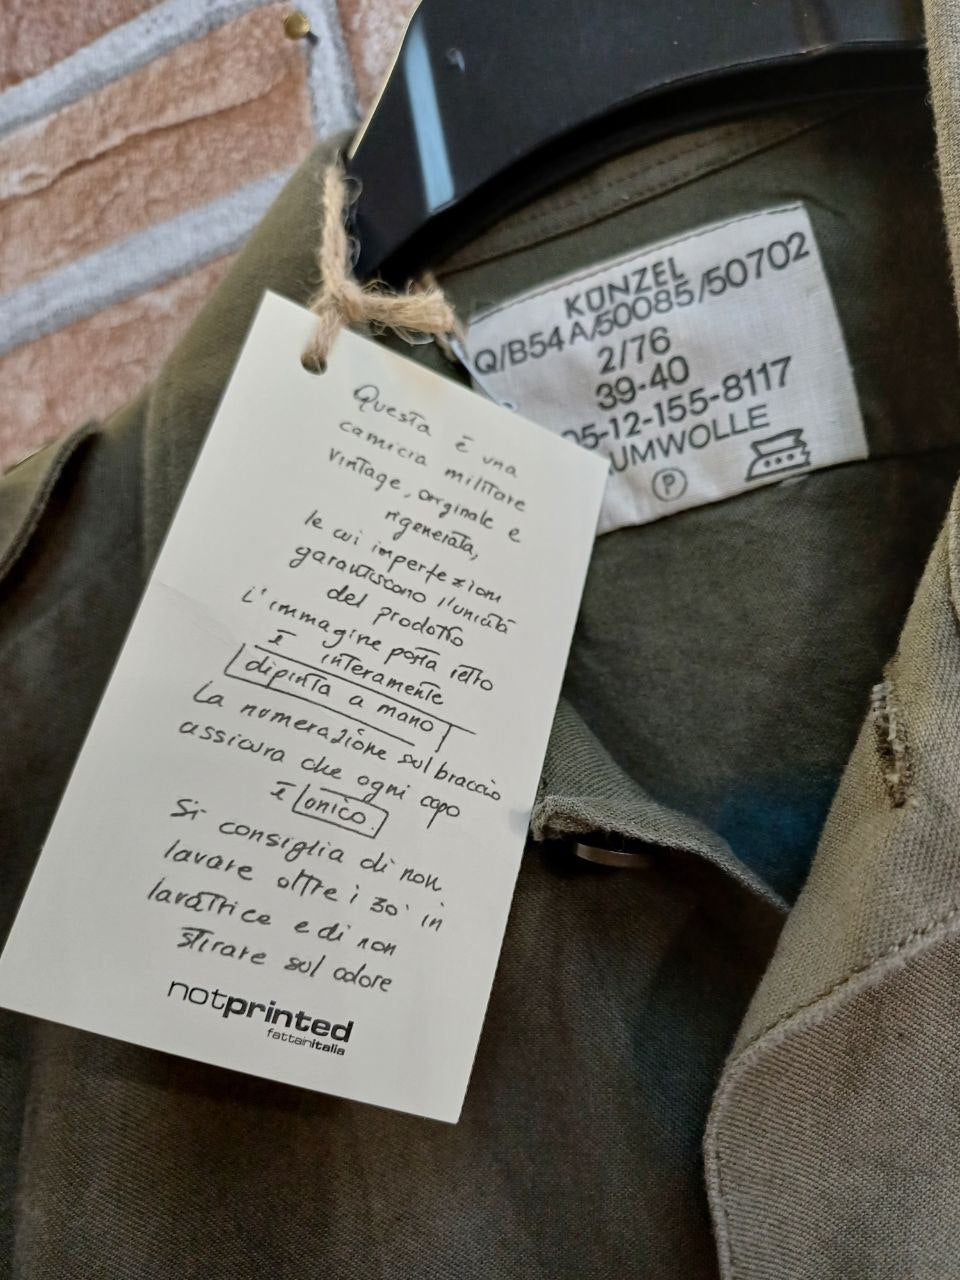 KÜNZEL
Q/B54A/50085/50702
2/76
39-40
05-12-155-8117
UMWOLLE
P
Questa è una
camicia militare
vintage, originale e
rigenerata,
le cui imperfezioni
garantiscono l'unicità
del prodotto
L'immagine posta retro
È interamente
dipinta a mano
La numerazione sul braccio
assicura che ogni capo
È unico.
Si consiglia di non
lavare oltre i 30° in
lavatrice e di non
stirare sul colore
notprinted
fattainitalia